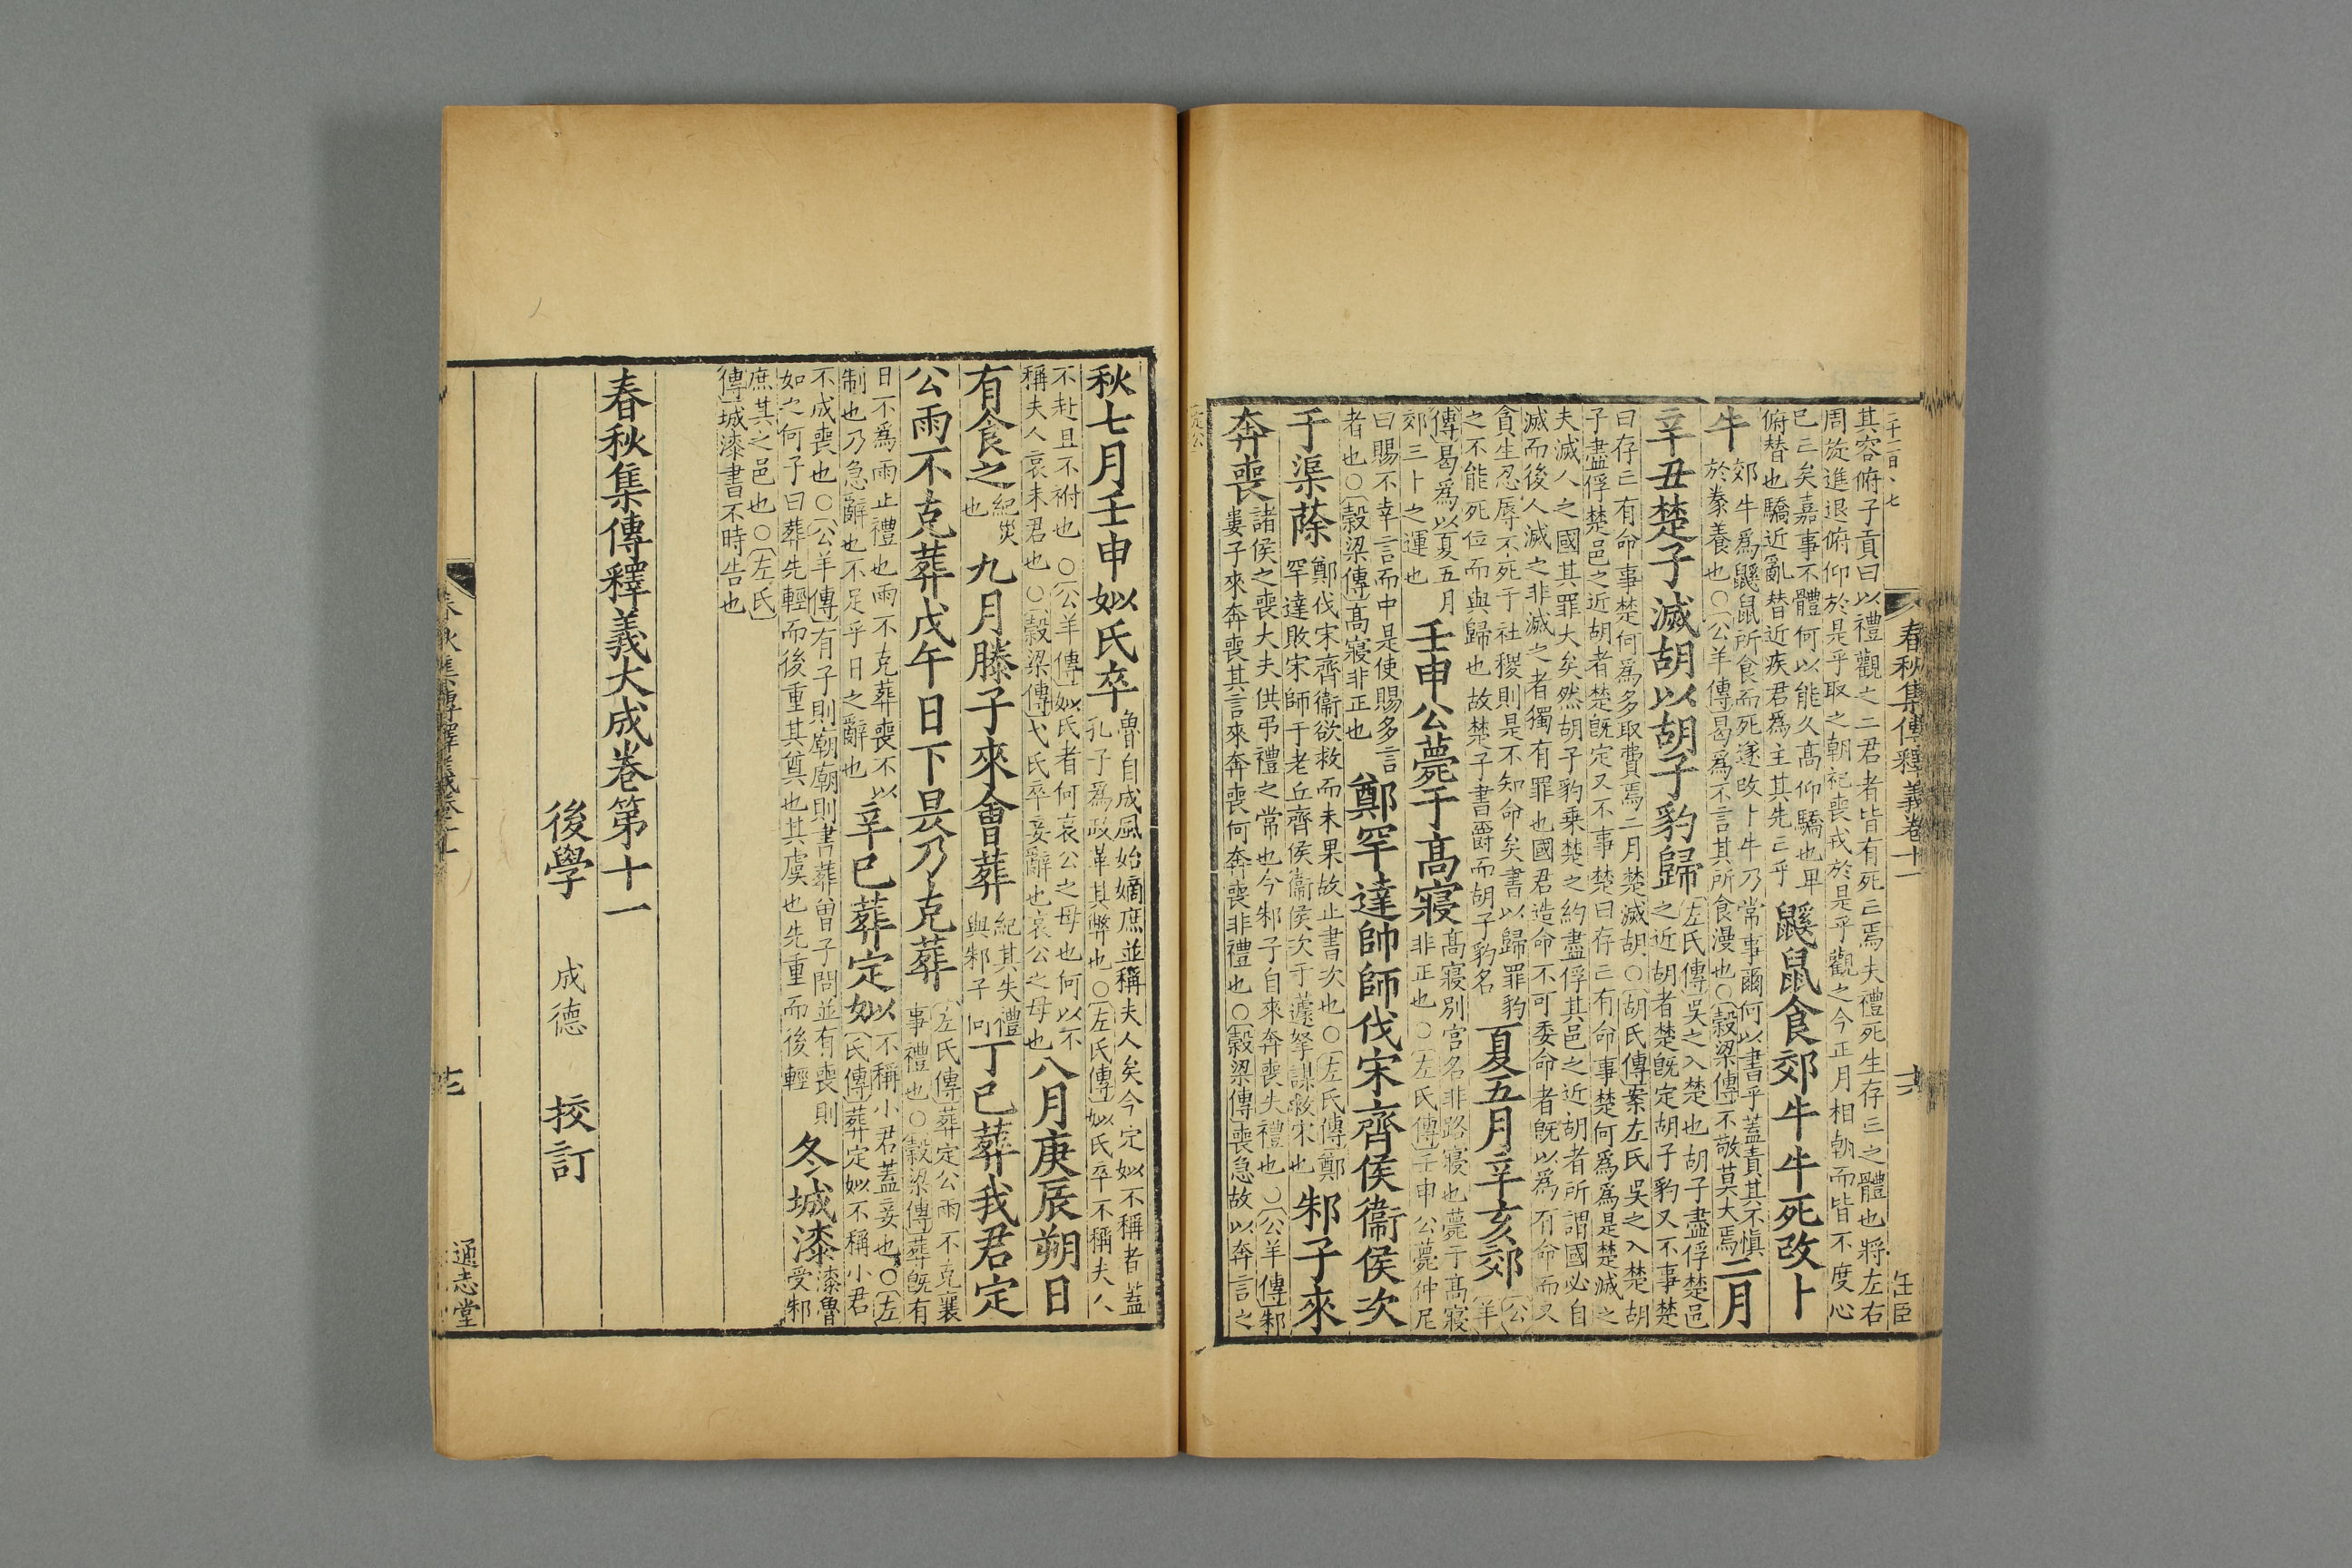 春秋集傳釋義卷十一
其容俯子貢曰以禮觀之二君者皆有死亡焉夫禮死生存亡之體也將左右
周旋進退俯仰於是乎取之朝祀喪戎於是乎觀之今正月相朝而皆不度心
已亡矣嘉事不體何以能久髙仰驕也卑
俯替也驕近亂替近疾君爲主其先亡乎
鼷鼠食郊牛牛死改卜
牛
郊牛爲鼷鼠所食而死遂改卜牛乃常事爾何以書乎蓋責其不慎
於豢養也○公羊傳曷爲不言其所食漫也○穀梁傳不敬莫大焉
二月
辛丑楚子滅胡以胡子豹歸
左氏傳吳之入楚也胡子盡俘楚邑
之近胡者楚旣定胡子豹又不事楚
曰存亡有命事楚何爲多取費焉二月楚滅胡○胡氏傳案左氏吳之入楚胡
子盡俘楚邑之近胡者楚旣定又不事楚曰存亡有命事楚何爲爲是楚滅之
夫滅人之國其罪大矣然胡子豹乗楚之約盡俘其邑之近胡者所謂國必自
滅而後人滅之非滅之者獨有罪也國君造命不可委命者旣以爲有命而又
貪生忍辱不死于社稷則是不知命矣書以歸罪豹
之不能死位而與歸也故楚子書爵而胡子豹名
夏五月辛亥郊
公羊
傳曷爲以夏五月
郊三卜之運也
壬申公薨于髙寢
髙寢別宫名非路寢也薨于髙寢
非正也○左氏傳壬申公薨仲尼
曰賜不幸言而中是使賜多言
者也○穀梁傳髙寢非正也
鄭罕達帥師伐宋齊侯衞侯次
于渠蒢
鄭伐宋齊衞欲救而未果故止書次也○左氏傳鄭
罕達敗宋師于老丘齊侯衞侯次于蘧挐謀救宋也
邾子來
奔喪
諸侯之喪大夫供弔禮之常也今邾子自來奔喪失禮也○公羊傳邾
婁子來奔喪其言來奔喪何奔喪非禮也○穀梁傳喪急故以奔言之
秋七月壬申姒氏卒
魯自成風始嫡庶並稱夫人矣今定姒不稱者蓋
孔子爲政革其弊也○左氏傳姒氏卒不稱夫人
不赴且不祔也○公羊傳姒氏者何哀公之母也何以不
稱夫人哀未君也○穀梁傳弋氏卒妾辭也哀公之母也
八月庚辰朔日
有食之
紀災
也
九月滕子來會葬
紀其失禮
與邾子同
丁巳葬我君定
公雨不克葬戊午日下昃乃克葬
左氏傳葬定公雨不克襄
事禮也○穀梁傳葬旣有
日不爲雨止禮也雨不克葬喪不以
制也乃急辭也不足乎日之辭也
辛巳葬定姒
不稱小君蓋妾也○左
氏傳葬定姒不稱小君
不成喪也○公羊傳有子則廟廟則書葬曾子問並有喪則
如之何子曰葬先輕而後重其奠也其虞也先重而後輕
冬城漆
漆魯
受邾
庶其之邑也○左氏
傳城漆書不時告也
春秋集傳釋義大成卷第十一
後學 成德 挍訂
通志堂